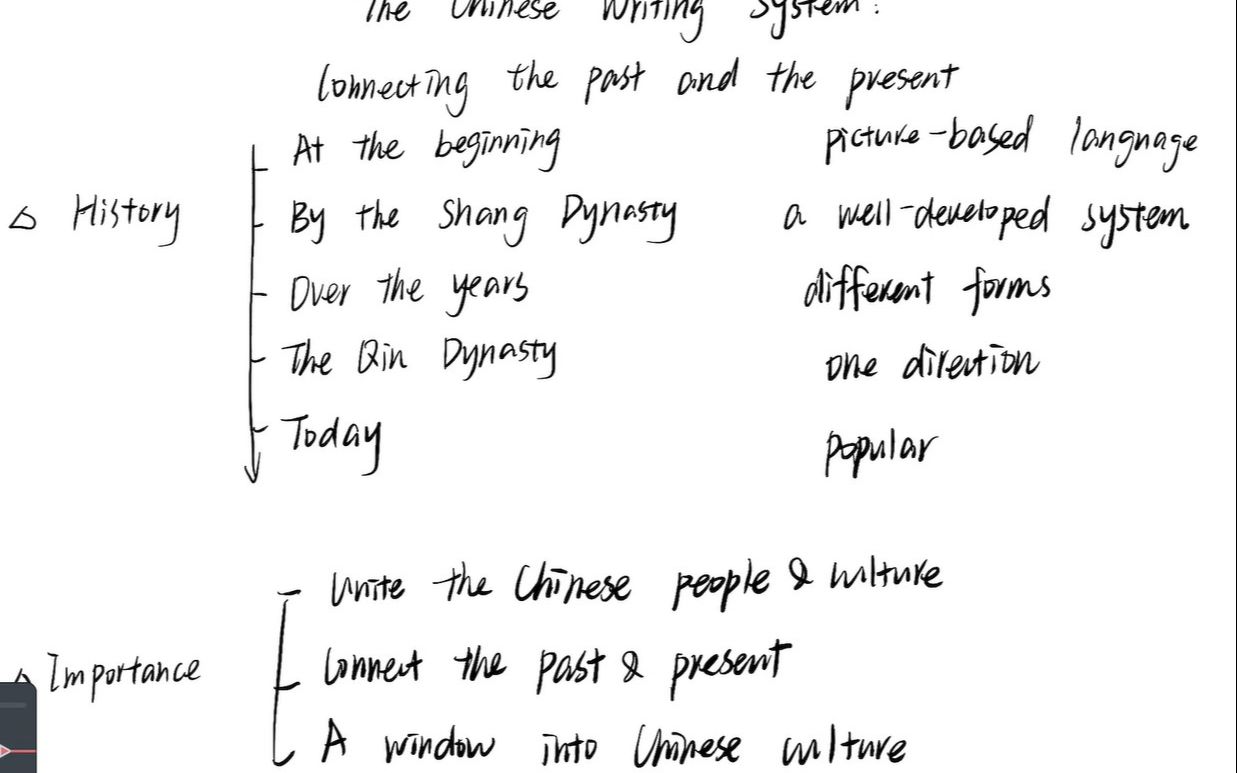 The Chinese Writing System:
Connecting the past and the present
At the beginning picture-based language
△ History By the Shang Dynasty a well-developed system
Over the years different forms
The Qin Dynasty one direction
Today popular
Unite the Chinese people & culture
△ Importance Connect the past & present
A window into Chinese culture